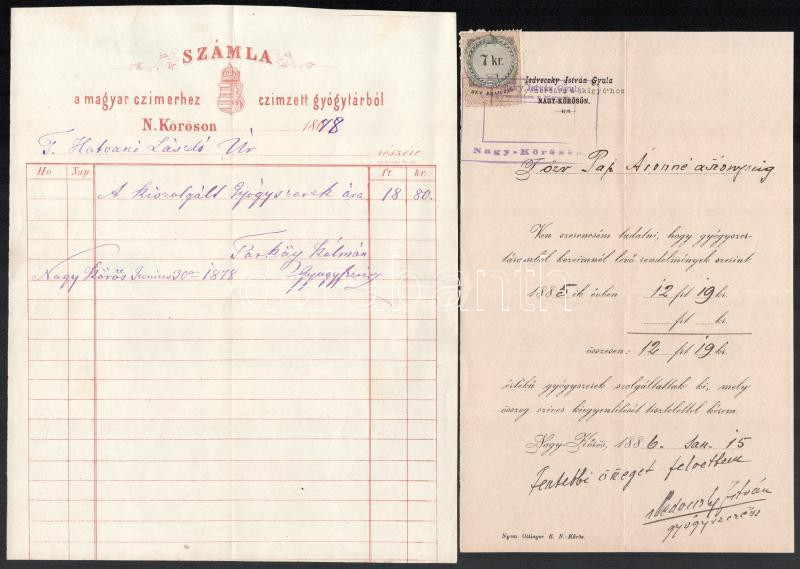 SZÁMLA
a magyar czimerhez czimzett gyógytárból
N. Kőrösön 1878
T. Hatvani László Úr
részére
Hó Nap ft. kr.
A kiszolgált Gyógyszerek ára 18 80.
Nagy Kőrös Junius 30án 1878
7 kr.
István Gyula
NAGY-KŐRÖSÖN.
Nagy-Kőrösön
Pap Áronné
Van szerencsém tudatni, hogy gyógyszer-
táramból kezeimnél levő rendelmények szerint
1885 ik évben 12 frt 19 kr.
frt kr.
összesen: 12 frt 19 kr.
értékű gyógyszerek szolgáltattak ki, mely
összeg szives kiegyenlitését tisztelettel kérem.
Nagy-Kőrös, 1886. Jan. 15
Fentebbi öszeget felvettem
István
gyógyszerész
Nyom. Ottinger E. N.-Kőrös.
darabanth